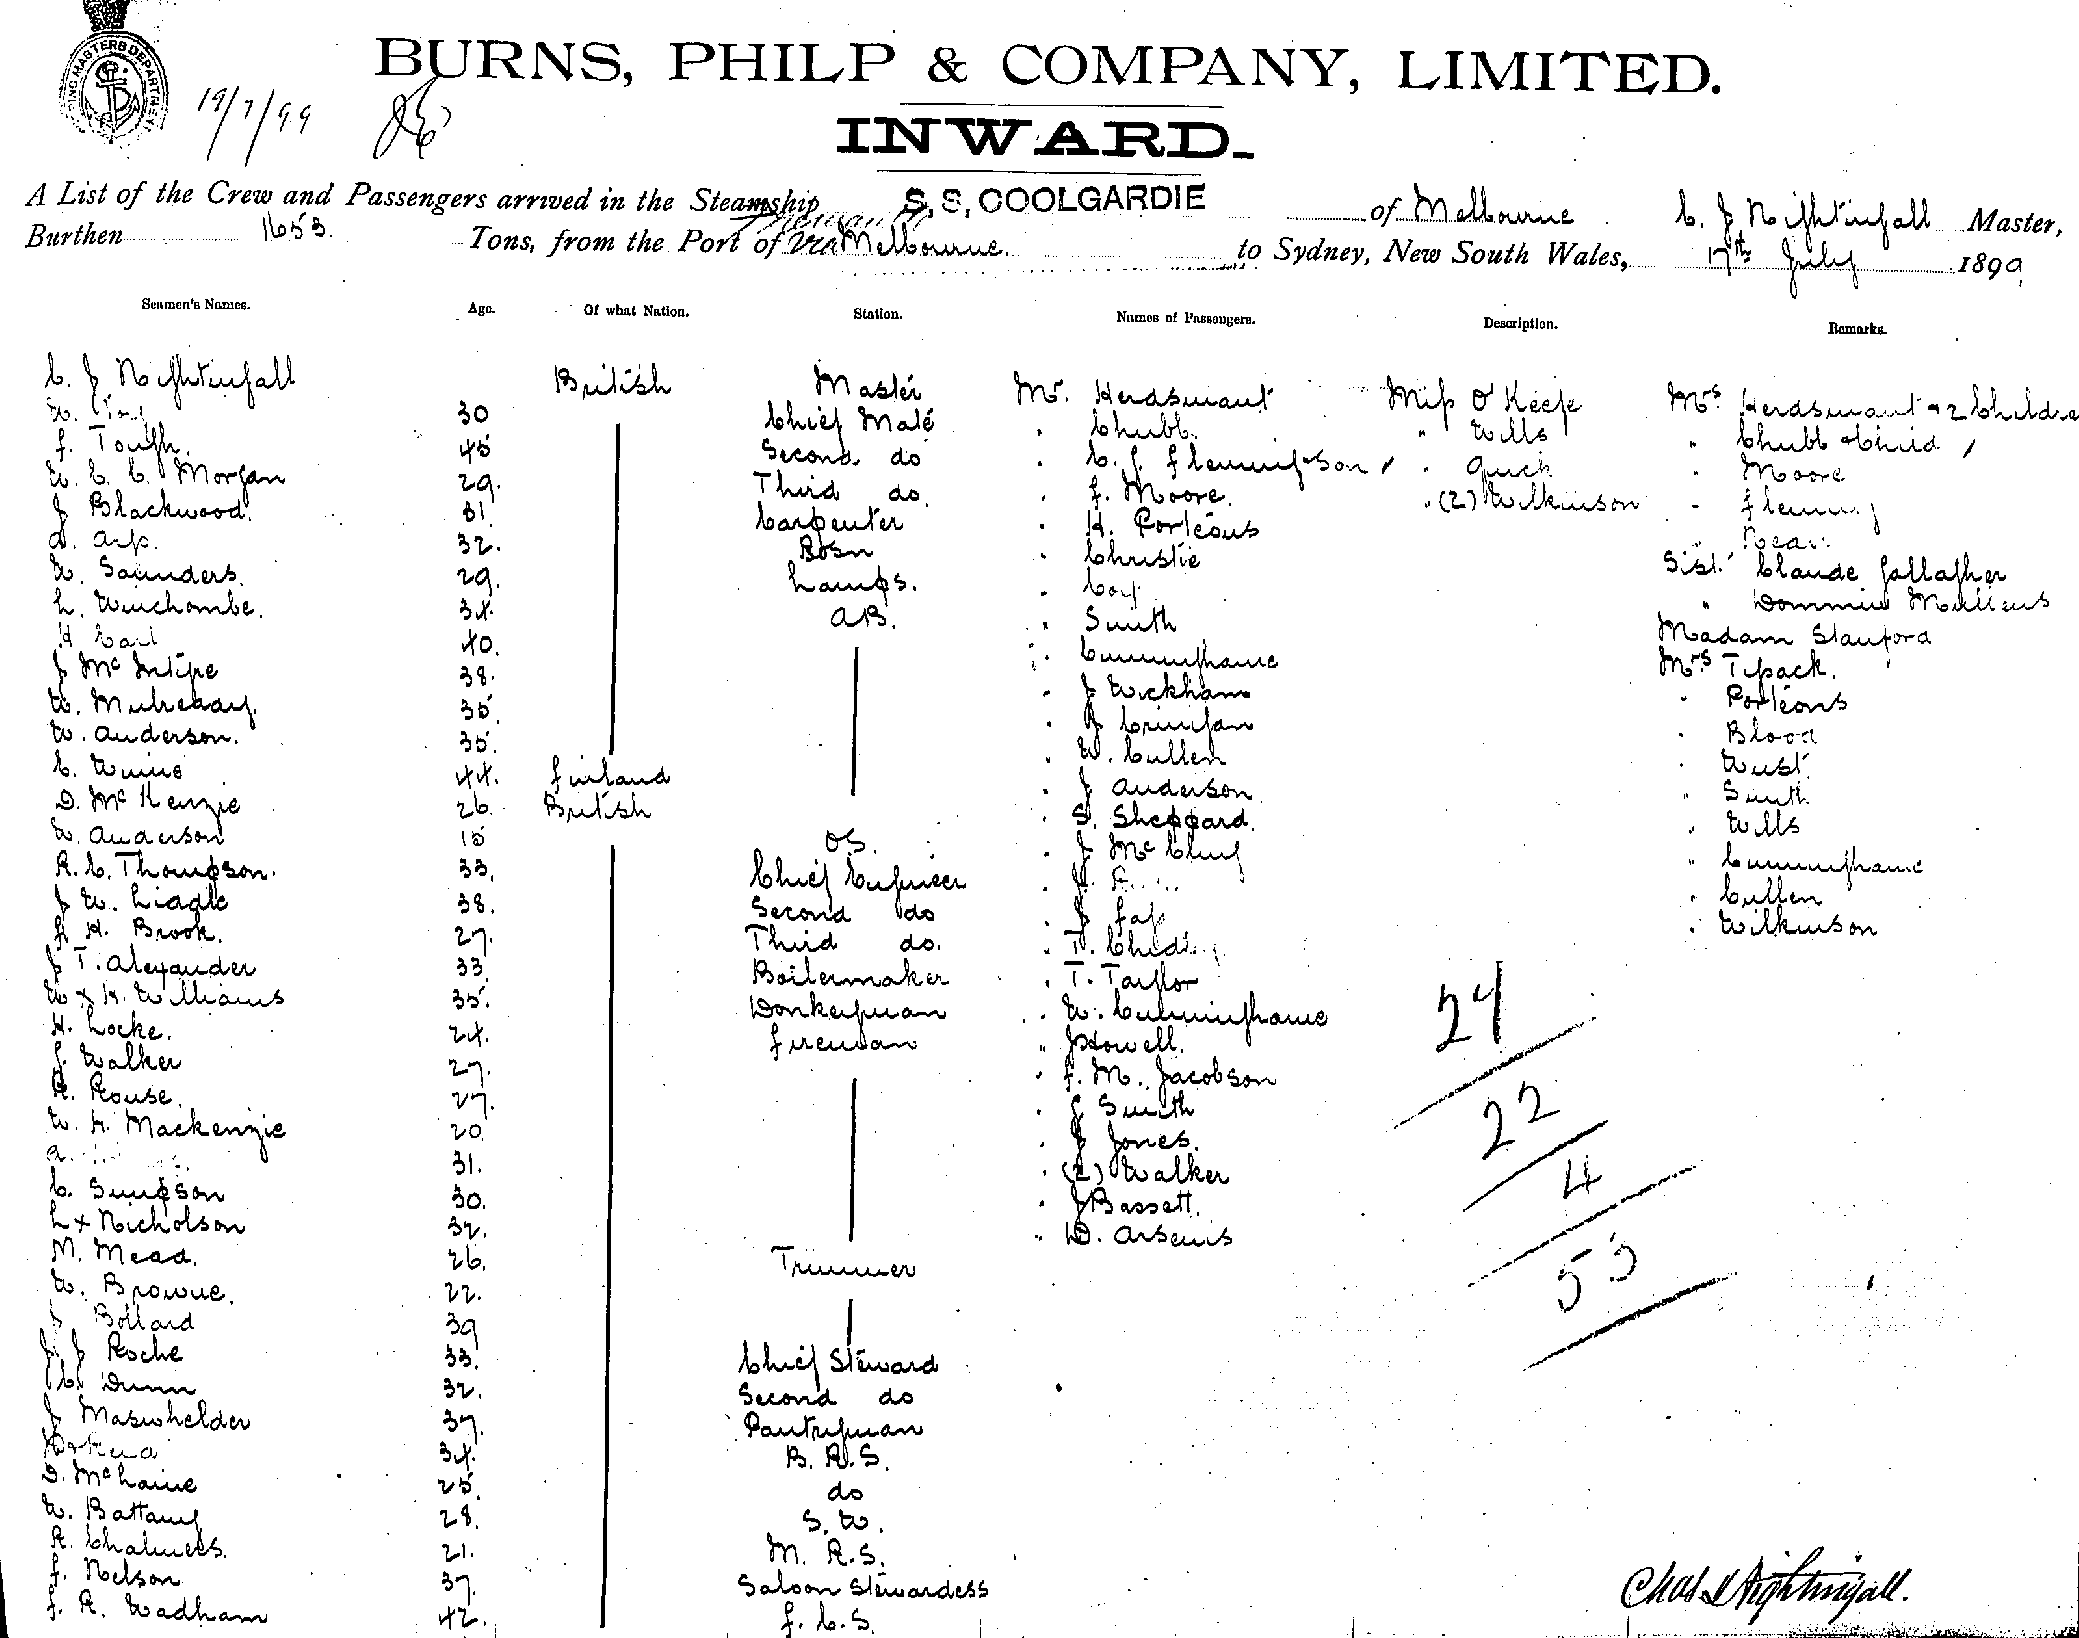 BURNS, PHILP & COMPANY, LIMITED.
19/7/99
INWARD.
A List of the Crew and Passengers arrived in the Steamship S.S. COOLGARDIE of Melbourne C. J. Nightingall Master,
Burthen 1653 Tons, from the Port of Via Melbourne to Sydney, New South Wales, 17th July 1899
Seamen's Names. Age. Of what Nation. Station. Names of Passengers. Description. Remarks.
C. J Nightingall British Master Mr. Herdsmant Miss O'Keefe Mrs Herdsmant + 2 Childre
30 Chief Mate " Chubb " Wills " Chubb + Child
f. Tough. 45 Second do " Flemming " Quick " Moore
W. C. C. Morgan 29. Third do " f. Moore. " (2) Wilkinson
J Blackwood. 31 Carpenter " H. Porteous
32. Bosn " Christie Sist. Claude Gallagher
W. Saunders. 29. Lamps. " Coy
L. Winchombe. 34. AB. " Smith Madam Stanford
H Earl 40. " Cunninghame Mrs Tipack.
J McIntyre 38. " J Wickham " Porteous
W. Mulready. 35. " J Cringan " Blood
W. Anderson. 35. " W. Cullen " West
44. Finland " J Anderson " Smith
D. McKenzie 26 British " S. Sheppard. " Wills
W. Anderson 15 O.S. " J McClug " Cunninghame
R. C. Thompson. 33. Chief Engineer " Cullen
J W. Liddle 38. Second do " Wilkinson
H. Brook. 27. Third do.
J T. Alexander 33. Boilermaker " T. Taylor
W + H. Williams 35. Donkeyman " W. Cunninghame
H. Locke. 24. Fireman " J Howell.
f. Walker 27. " f. M. Jacobson
R. Rouse. 27. " J Smith
W. H. Mackenzie 20 " J Jones.
31. " (2) Walker
C. Simpson 30. " J Bassett.
L + Nicholson 32. " D. Arsenis
M. Mead. 26. Trimmer
W. Browne. 22.
Bollard 39
J J Roche 33. Chief Steward
C. Dunn 32. Second do
J Maswhelder 37. Pantryman
34. B. R. S.
D. McLaine 25. do
W. Battany 28. S. W.
R. Chalmers. 21. M. R. S.
f. Nelson 37. Saloon Stewardess
f. R. Wadham 42. f. C. S.
24
22
4
53
Chas J Nightingall.